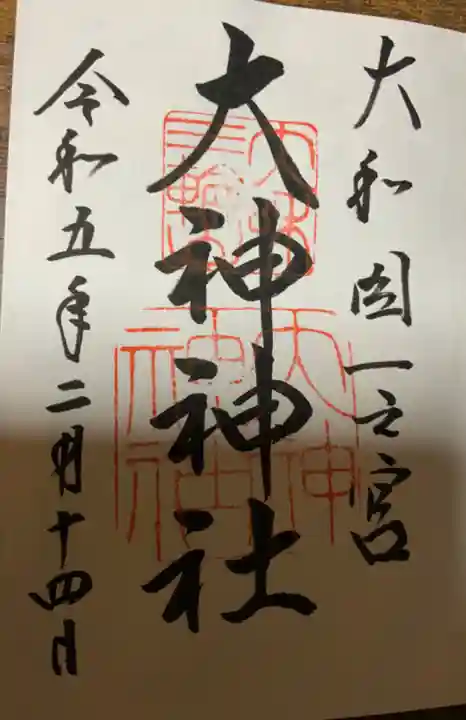 大和国一之宮
大神神社
令和五年二月十四日
大神神社